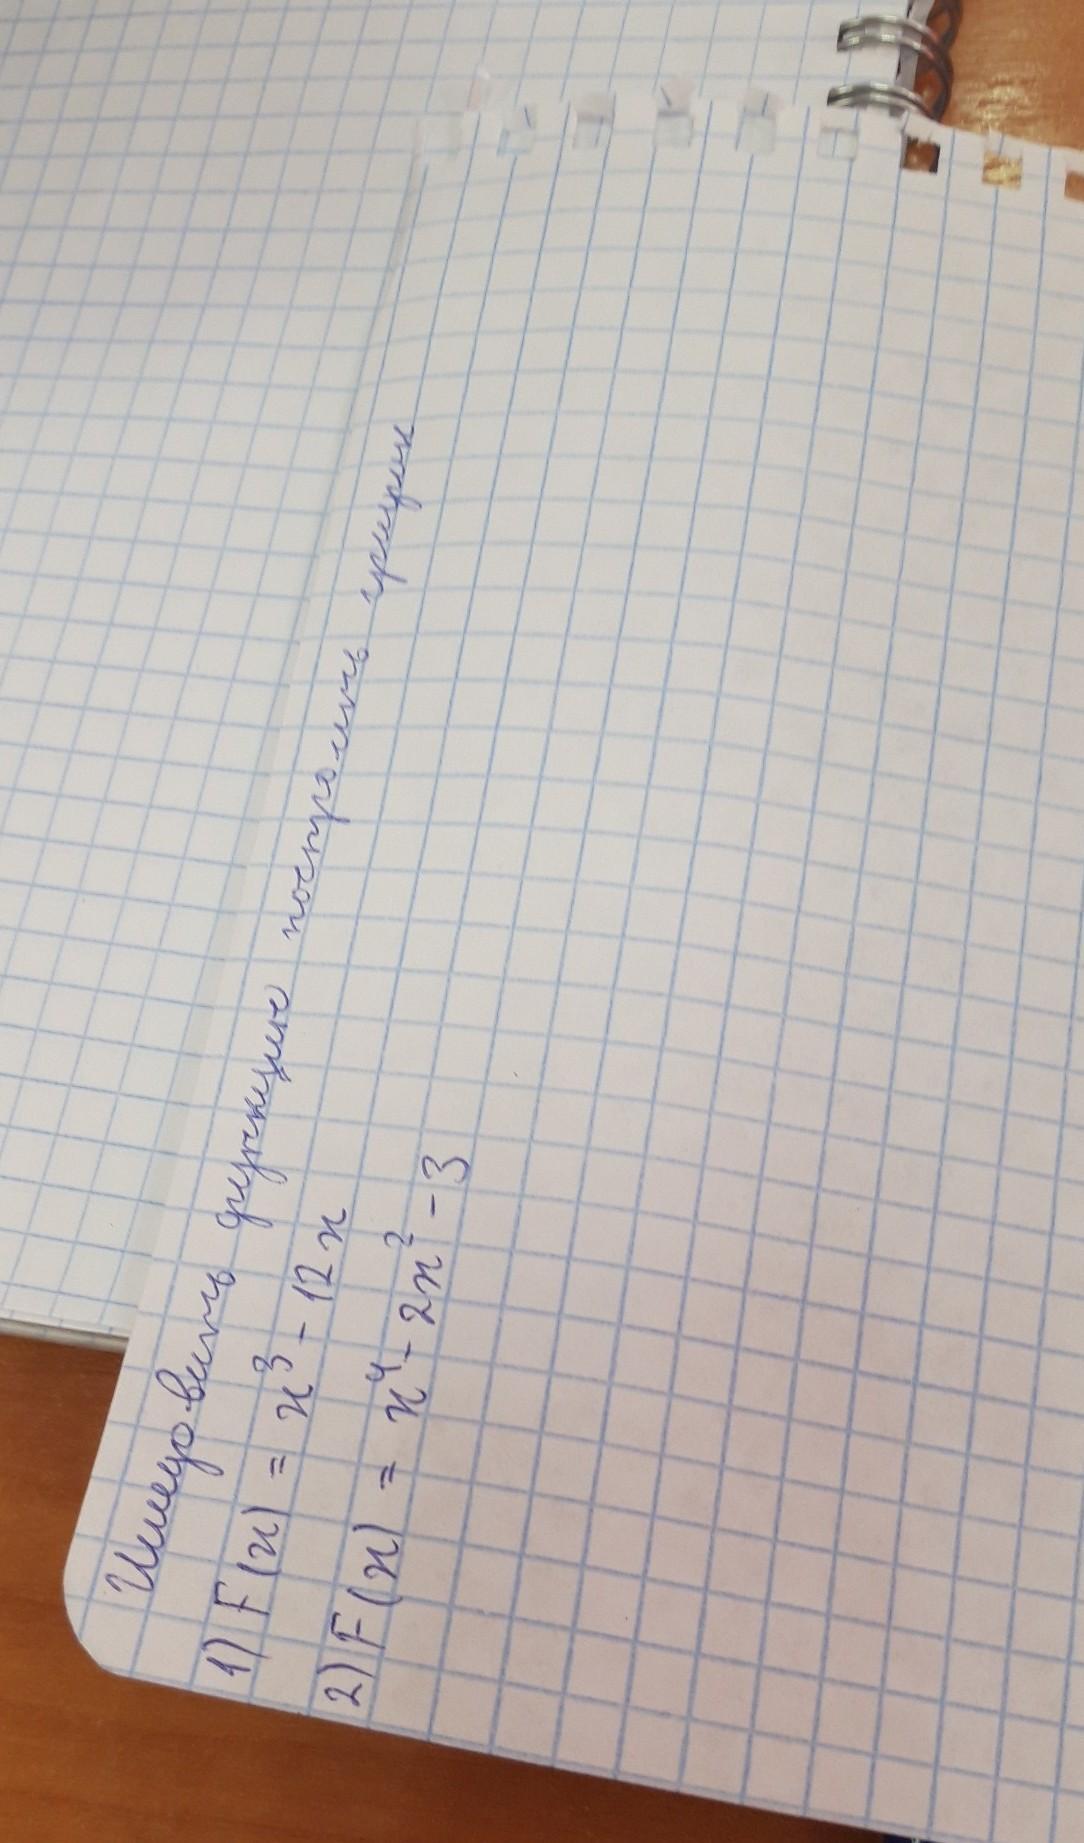 Исследовать функцию построить график
1) F(x) = x³ - 12x
2) F(x) = x⁴ - 2x² - 3